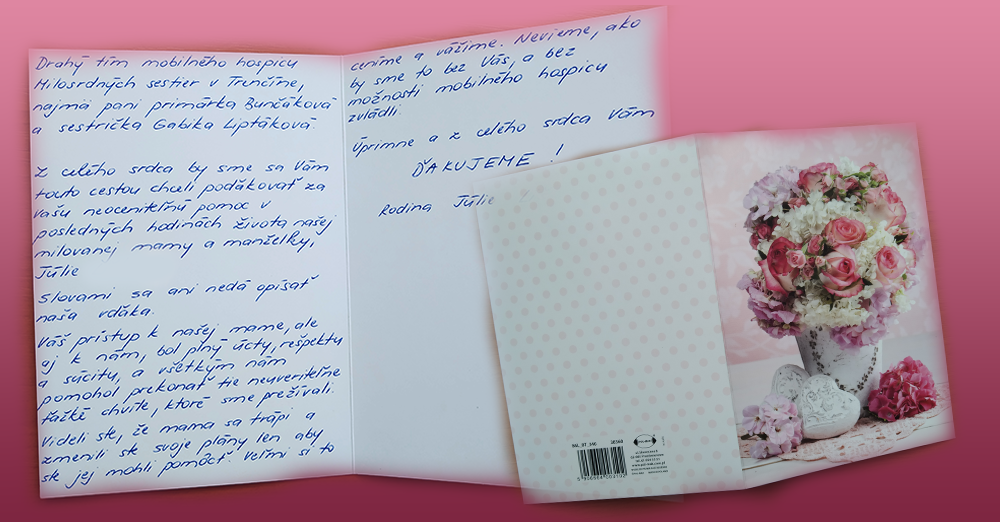 Drahý tím mobilného hospicu
Milosrdných sestier v Trenčíne,
najmä pani primárka Bunčáková
a sestrička Gabika Liptáková.
Z celého srdca by sme sa Vám
touto cestou chceli poďakovať za
Vašu neoceniteľnú pomoc v
posledných hodinách života našej
milovanej mamy a manželky,
Júlie
Slovami sa ani nedá opísať
naša vďaka.
Váš prístup k našej mame, ale
aj k nám, bol plný úcty, rešpektu
a súcitu, a všetkým nám
pomohol prekonať tie neuveriteľne
ťažké chvíle, ktoré sme prežívali.
Videli ste, že mama sa trápi a
zmenili ste svoje plány len aby
ste jej mohli pomôcť. Veľmi si to
ceníme a vážime. Nevieme, ako
by sme to bez Vás, a bez
možnosti mobilného hospicu
zvládli.
Úprimne a z celého srdca Vám
ĎAKUJEME !
Rodina Júlie